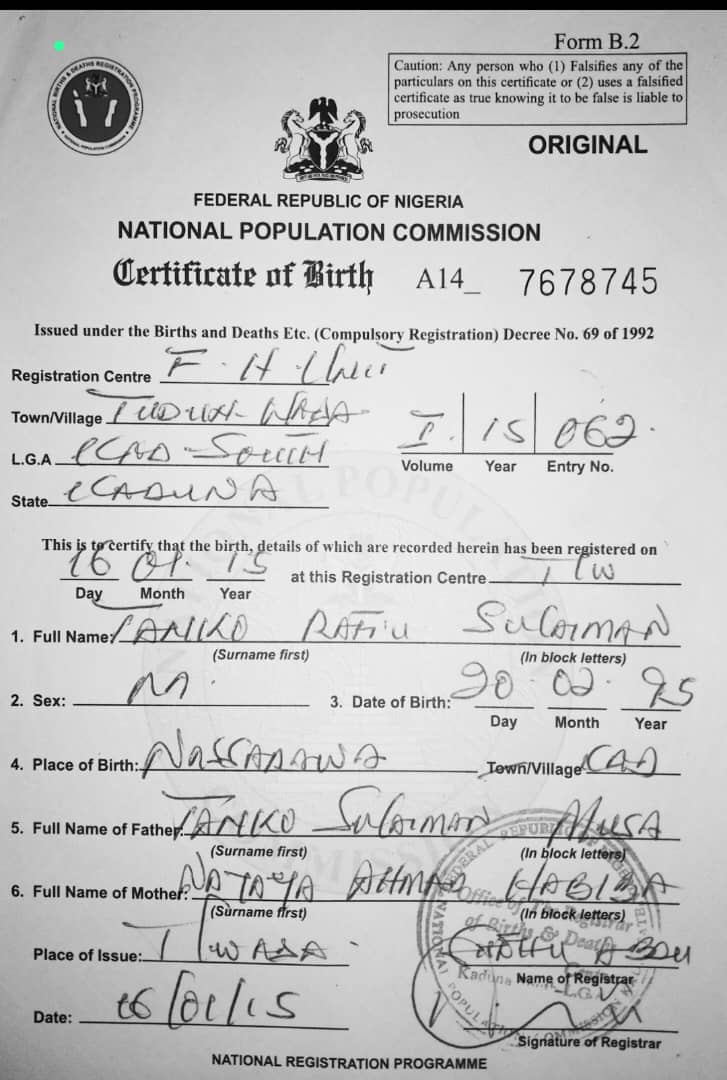 Form B.2
Caution: Any person who (1) Falsifies any of the
particulars on this certificate or (2) uses a falsified
certificate as true knowing it to be false is liable to
prosecution
NATIONAL BIRTHS & DEATHS REGISTRATION PROGRAMME
NATIONAL POPULATION COMMISSION
ORIGINAL
FEDERAL REPUBLIC OF NIGERIA
NATIONAL POPULATION COMMISSION
Certificate of Birth A14_ 7678745
Issued under the Births and Deaths Etc. (Compulsory Registration) Decree No. 69 of 1992
Registration Centre F. H
Town/Village TUDUN WADA
I. 15 062.
L.G.A KAD SOUTH
Volume Year Entry No.
State KADUNA
This is to certify that the birth, details of which are recorded herein has been registered on
16 01. 15 at this Registration Centre T/W
Day Month Year
1. Full Name: TANKO RAFIU SULAIMAN
(Surname first) (In block letters)
2. Sex: M. 3. Date of Birth: 20. 02. 95
Day Month Year
4. Place of Birth: NASSARAWA Town/Village KAD
5. Full Name of Father: TANKO SULAIMAN MUSA
(Surname first) (In block letters)
6. Full Name of Mother: AHMAD HABIBA
(Surname first) (In block letters)
Office of The Registrar
of Births & Deaths
Place of Issue: T/WADA ABDU
Kaduna L.G.A
Name of Registrar
Date: 16/01/15
Signature of Registrar
NATIONAL REGISTRATION PROGRAMME